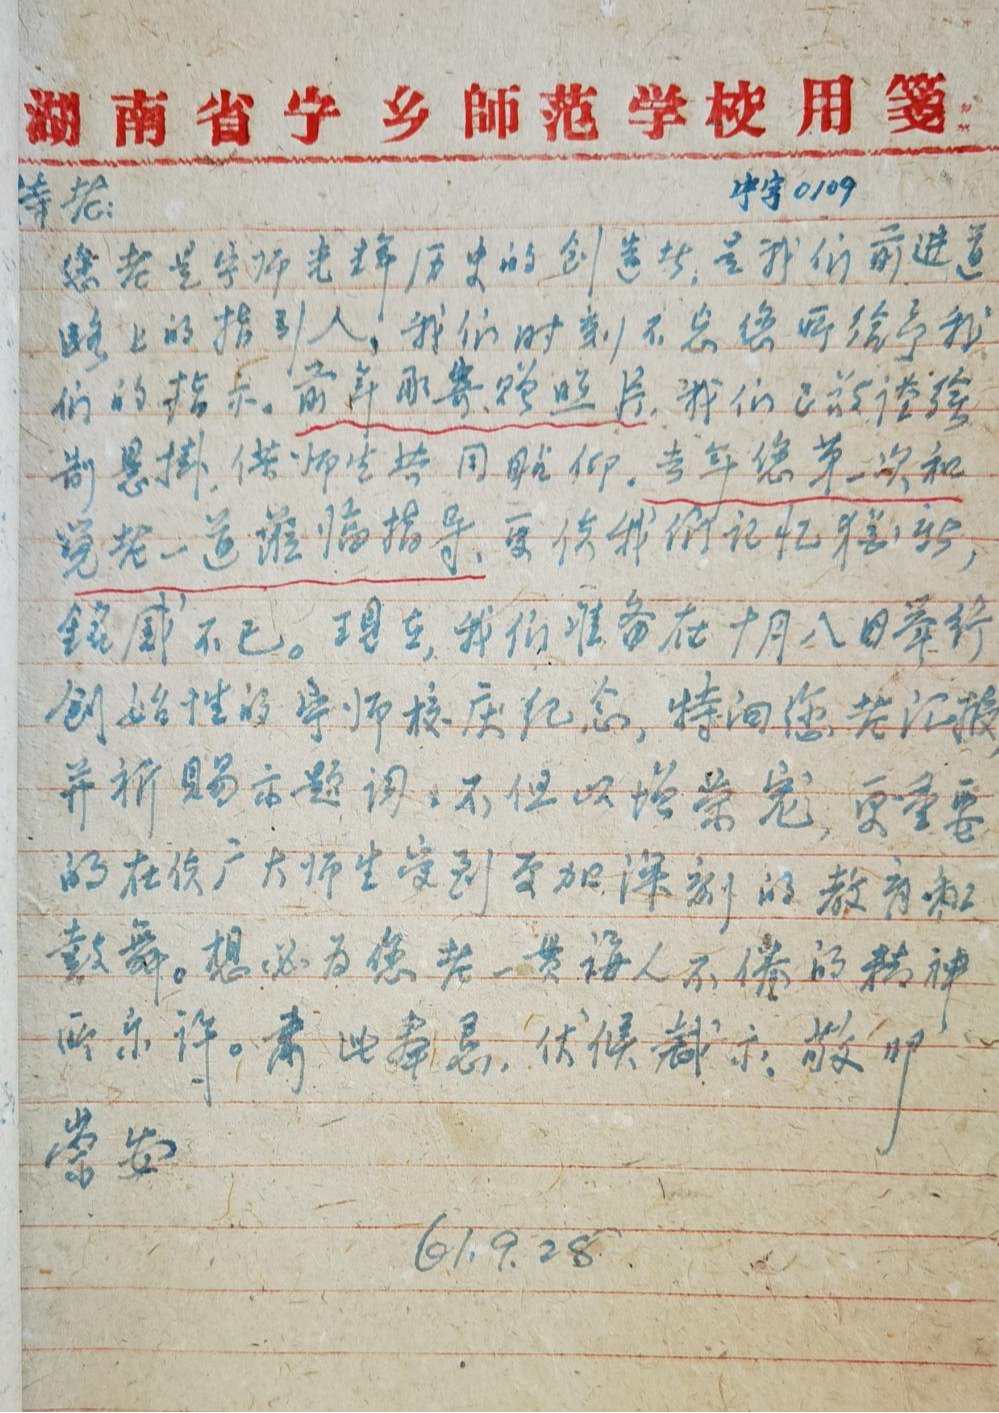 湖南省宁乡師范学校用箋
中字0109
特老：
您老是宁师光辉历史的创造者，是我们前进道
路上的指引人，我们时刻不忘您所给予我
们的指示。前年承寄赠照片，我们已敬谨绘
制悬掛，供师生共同瞻仰。去年您第一次和
觉老一道莅临指导，更使我们记忆犹新，
铭感不已。現在，我们准备在十月八日举行
创始性的宁师校庆纪念，特向您老汇报，
并祈賜示题词，不但以增荣宠，更重要
的在使广大师生受到更加深刻的教育和
鼓舞。想必为您老一贯诲人不倦的精神
所乐许。肃此奉恳，伏候裁示，敬叩
崇安
61.9.28